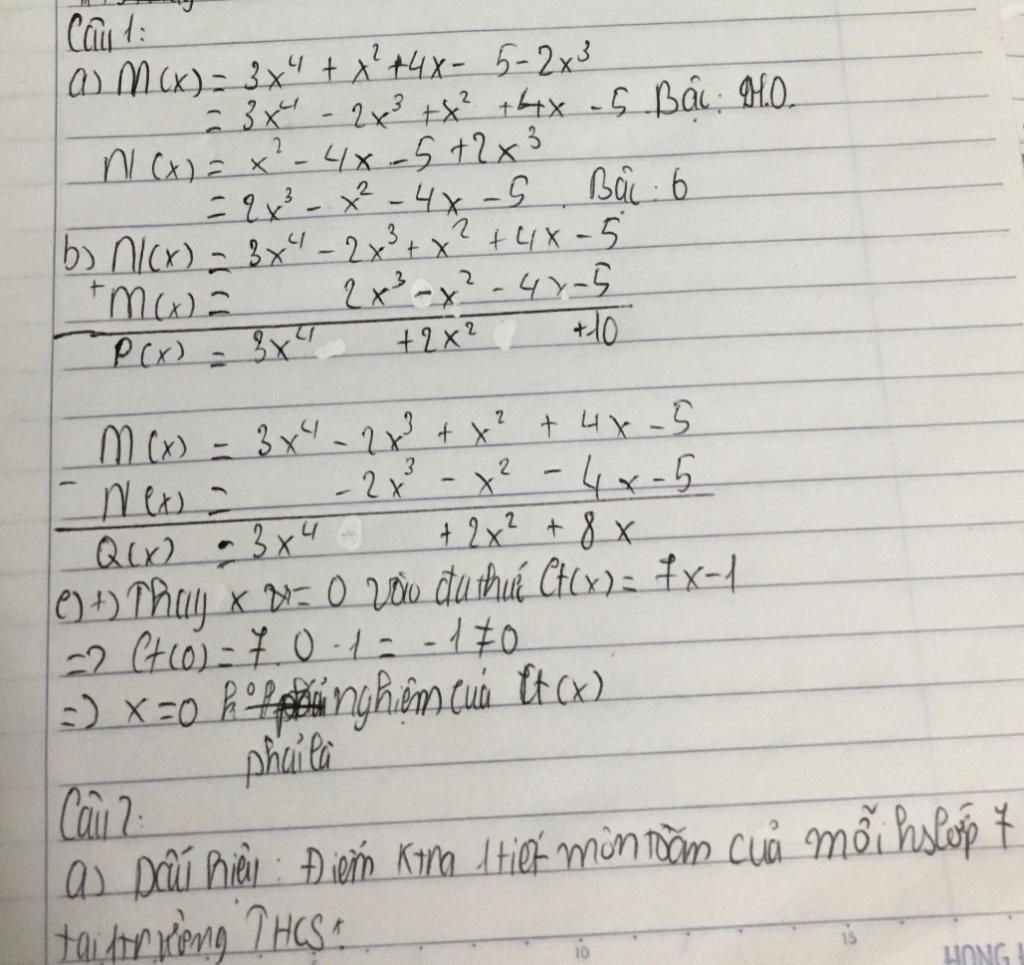 Câu 1:
a) M(x) = 3x⁴ + x² + 4x - 5 - 2x³
= 3x⁴ - 2x³ + x² + 4x - 5 Bậc: 10.
N(x) = x² - 4x - 5 + 2x³
= 2x³ - x² - 4x - 5. Bậc: 6
b) N(x) = 3x⁴ - 2x³ + x² + 4x - 5
+ M(x) = 2x³ - x² - 4x - 5
P(x) = 3x⁴ + 2x² + 10
M(x) = 3x⁴ - 2x³ + x² + 4x - 5
- N(x) = - 2x³ - x² - 4x - 5
Q(x) = 3x⁴ + 2x² + 8x
c) +) Thay x = 0 vào đa thức (x) = 7x - 1
=> (0) = 7.0 - 1 = - 1 ≠ 0
=> x = 0 k° nghiệm của (x)
phải là
Câu 2:
a) Dấu hiệu: Điểm ktra 1 tiết môn toán của mỗi hs lớp 7
tại trường THCS.
10 15
HONG